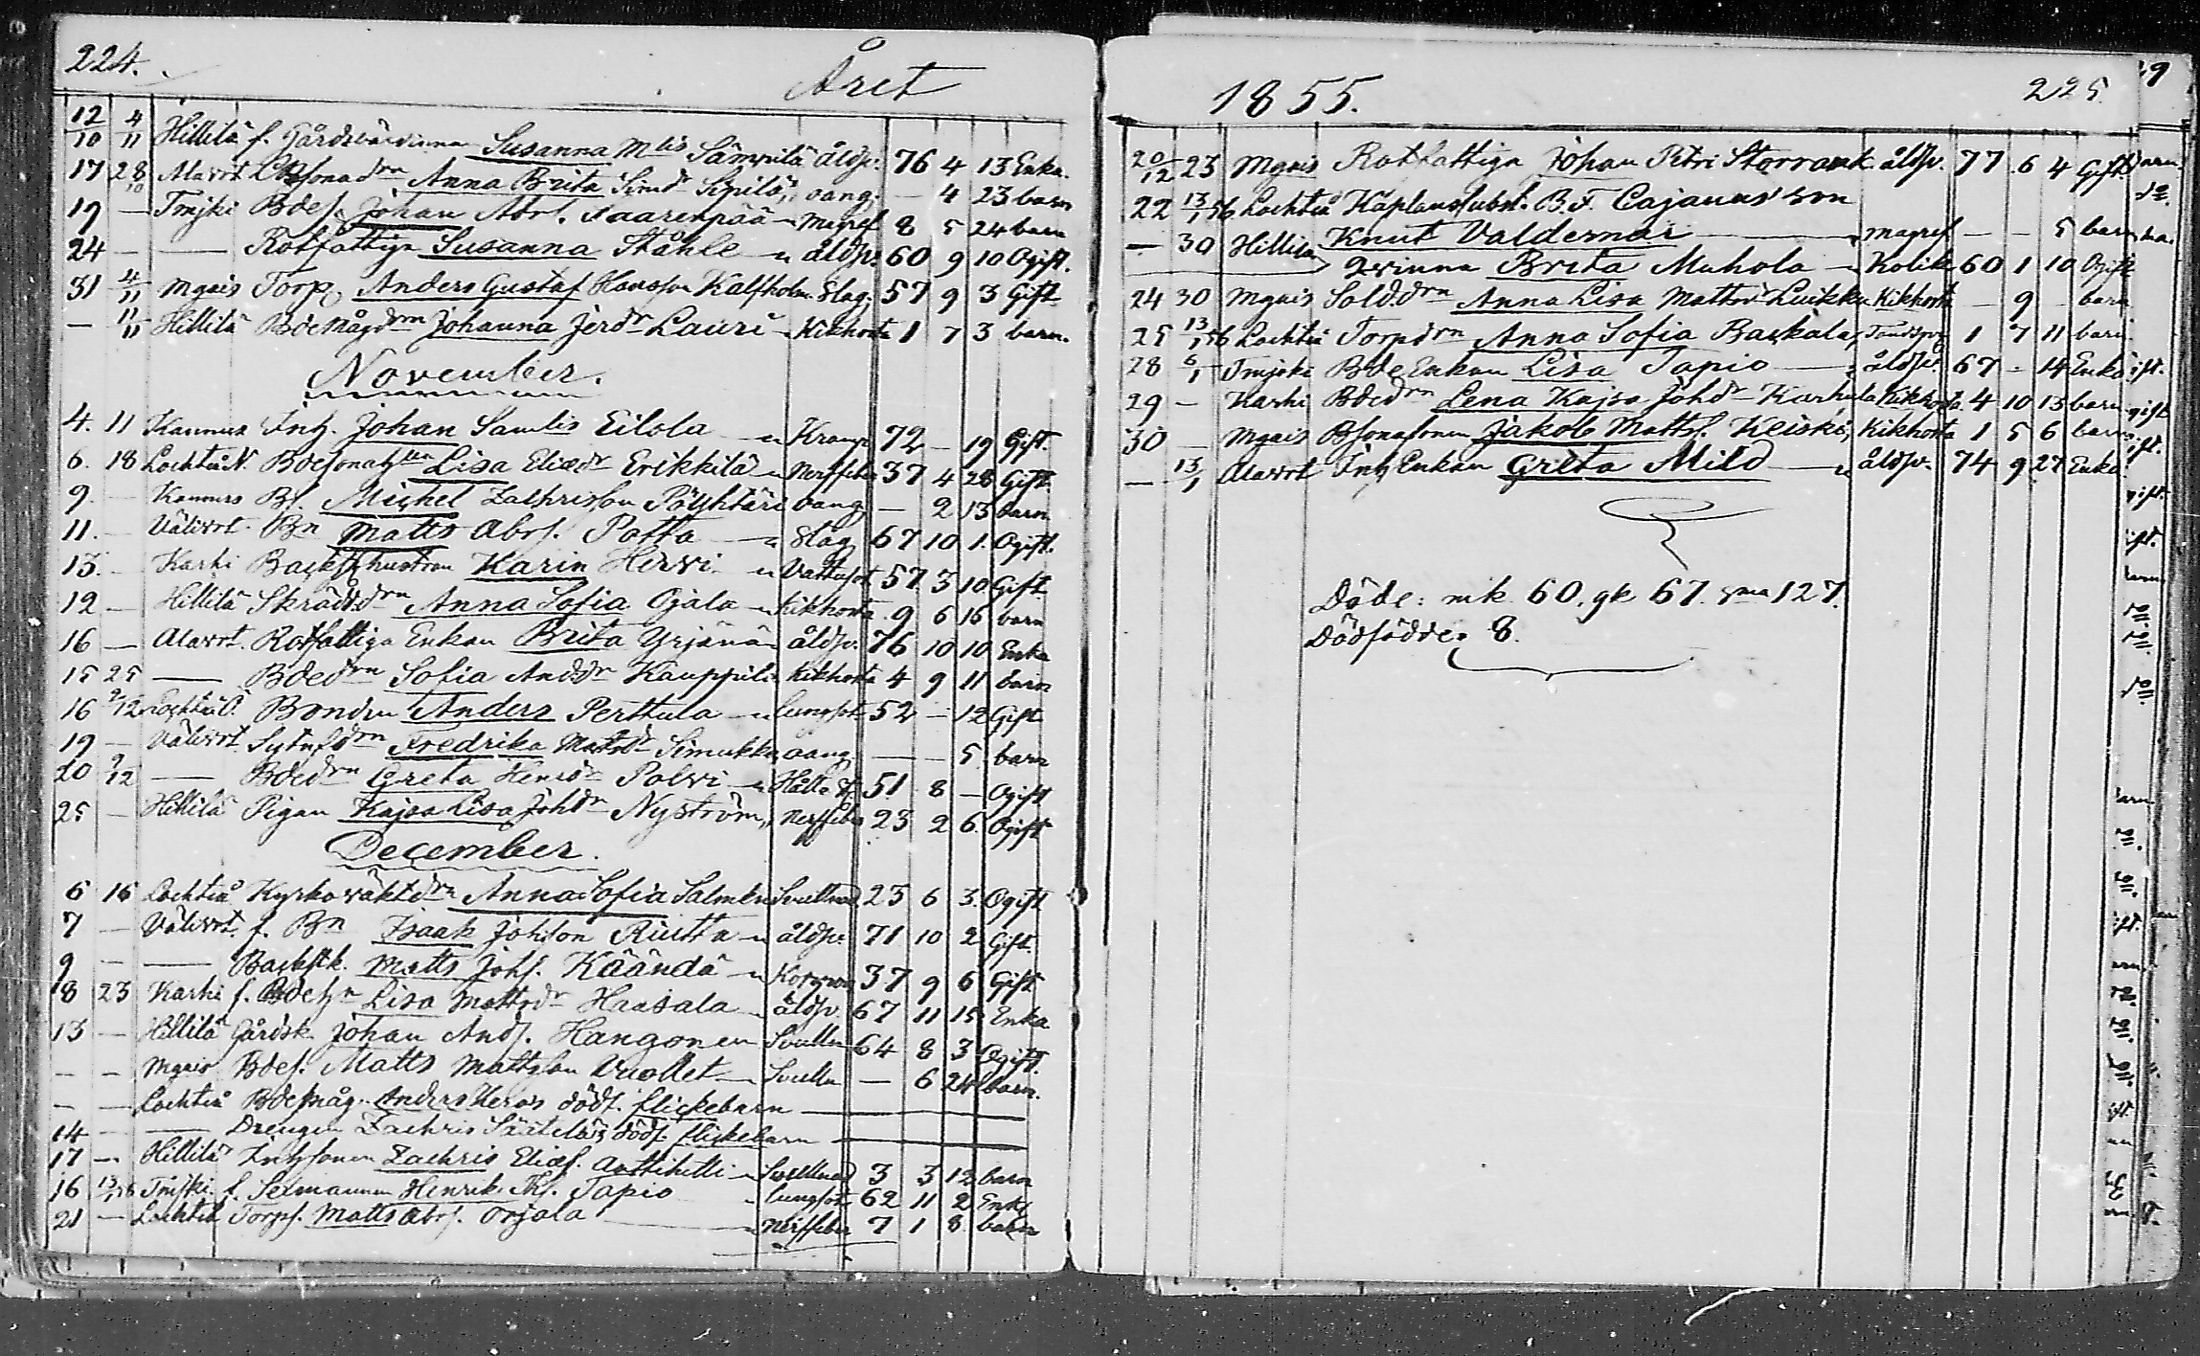 224.
Året
12/10 4/11 Hillilä f. Gårdsvärdinna Susanna Mts Sämpilä åldsv. 76 4 13 Enka.
17 28/10 Alavrt BSonadrn Anna Brita Simdr Sipilä, oang. — 4 23 barn
19 — Tmjki Bdes. Johan Abrs. Saarenpää " Magref 8 5 24 barn
24 — — Rotfattiga Susanna Ståhle " åldsv. 60 9 10 Ogift.
31 4/11 Mgnis Torp. Anders Gustaf Hansson Kalfholm Slag. 57 9 3 Gift
— 11/11 Hillilä Bdemågdrn Johanna Jerdr Lauri " Kikhosta 1 7 3 barn.
November.
4. 11 Kannus Inh. Johan Samlis Eilola " Kramp 72 — 19 Gift.
6. 18 Lochteå N. Bdesonah Lisa Eliædr Erikkilä " Nerffeber 37 4 28 Gift
9. — Kannus Bs. Michel Zachrisson Pöyhtäri oang. — 2 13 barn
11. — Välivrt Bn Matts Abrs. Potta " Slag 67 10 1. Ogift.
13. — Karhi Backsthustrun Karin Hirvi " Vattusot 57 3 10 Gift.
12 — Hillilä Skrädddrn Anna Sofia Ojala " Kikhosta 9 6 16 barn
16 — Alavrt. Rotfattiga Enkan Brita Yrjänä " åldsv. 76 10 10 Enka
15 25 — Bdedrn Sofia Anddr Kauppila Kikhosta 4 9 11 barn
16 2/12 Lochteå Ö. Bonden Anders Perttula " lungsot 52 — 12 Gift
19 — Välivrt Sytnsdrn Fredrika Mattsdr Simukka, oang — — 5. barn
20 2/12 — Bdedrn Greta Henrdr Polvi " Håll o St. 51 8 — Ogift
25 — Hillilä Pigan Kajsa Lisa Johdr Nyström " Nerffeber 23 2 6. Ogift
December.
6 16 Lochteå Kyrkoväktdrn Anna Sofia Salmela Svullnad 23 6 3. Ogift
7 — Välivrt. f. Bn Isaak Johsson Ruitta " åldsv. 71 10 2 Gift.
9 — — Backstk. Matts Johs. Käändä " 37 9 6 Gift
8 23 Karhi f. Bdehn Lisa Mattsdr Haasala " åldsv. 67 11 15 Enka
13 — Hillilä Gårdsk. Johan Ands. Hangonen Svulln 64 8 3 Ogift.
— — Mgnis Bdes. Matts Mattsson Vuollet " Svulln — 6 24 barn.
— — Lochteå Bdemåg. Anders Heros dödf. flickebarn
14 — — Drengen Zachris Säätelä's dödf. flickebarn
17 — Hillilä Inhsonen Zachris Eliæs. Anttihilli " Svullnad 3 3 12 barn
16 13/1 56 Tmjki. f. Sexmannen Henrik Ths. Tapio " lungsot 62 11 2 Enkl
21 — Lochteå Torps. Matts Abrs. Orjala " Nerffeber 7 1 8. barn
1855.
225.
20/12 23 Mgnis Rotfattiga Johan Petri Storrank åldsv. 77 6 4 Gift
22 13/1 56 Lochteå Kaplanssubst. B. F. Cajanus' son
Knut Valdemar — " magref — — 5 barn
— 30 Hillilä Qvinna Brita Muhola " Kolik 60 1 10 Ogift
24 30 Mgnis Solddrn Anna Lisa Mattsdr Luikku Kikhosta — 9 — barn
25 13/1 56 Lochteå Torpdrn Anna Sofia Backala, Tandspr. 1 7 11 barn
28 6/1 Tmjoki Bde Enkan Lisa Tapio — " åldsv. 67 — 14 Enka
29 — Karhi Bdedrn Lena Kajsa Johdr Karhula Kikhosta 4 10 13 barn
30 — Mgnis Bsonasonen Jakob Matts. Keiski, Kikhosta 1 5 6 barn
— 13/1 Alavrt Inh Enkan Greta Mild — " åldsv. 74 9 27 Enka
Döde: mk 60. qk 67. sma 127.
Dödfödde: 8.